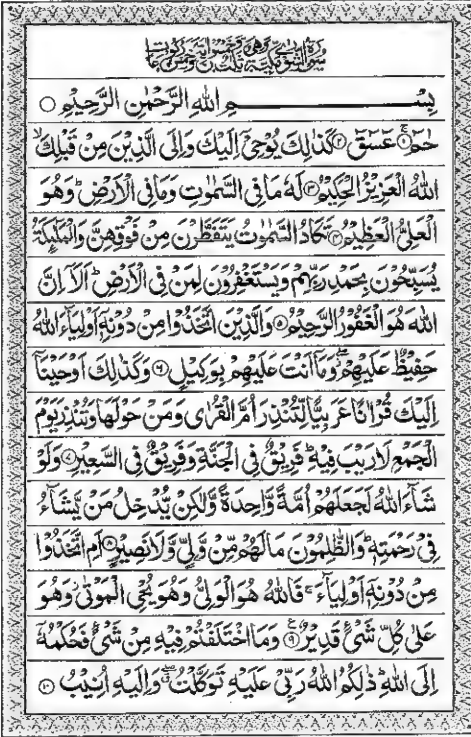 سورة الشورى مكية وهي ثلث وخمسون آية وخمس ركوعات
بِسْمِ اللهِ الرَّحْمٰنِ الرَّحِيْمِ ○
حٰمٓ ۚ﴿۱﴾ عٓسٓقٓ ﴿۲﴾ كَذٰلِكَ يُوْحِيْٓ اِلَيْكَ وَاِلَى الَّذِيْنَ مِنْ قَبْلِكَ ۙ
اللهُ الْعَزِيْزُ الْحَكِيْمُ ﴿۳﴾ لَهٗ مَا فِي السَّمٰوٰتِ وَمَا فِي الْاَرْضِ ؕ وَهُوَ
الْعَلِيُّ الْعَظِيْمُ ﴿۴﴾ تَكَادُ السَّمٰوٰتُ يَتَفَطَّرْنَ مِنْ فَوْقِهِنَّ وَالْمَلٰٓئِكَةُ
يُسَبِّحُوْنَ بِحَمْدِ رَبِّهِمْ وَيَسْتَغْفِرُوْنَ لِمَنْ فِي الْاَرْضِ ؕ اَلَآ اِنَّ
اللهَ هُوَ الْغَفُوْرُ الرَّحِيْمُ ﴿۵﴾ وَالَّذِيْنَ اتَّخَذُوْا مِنْ دُوْنِهٖٓ اَوْلِيَآءَ اللهُ
حَفِيْظٌ عَلَيْهِمْ ۖ وَمَآ اَنْتَ عَلَيْهِمْ بِوَكِيْلٍ ﴿۶﴾ وَكَذٰلِكَ اَوْحَيْنَآ
اِلَيْكَ قُرْاٰنًا عَرَبِيًّا لِّتُنْذِرَ اُمَّ الْقُرٰى وَمَنْ حَوْلَهَا وَتُنْذِرَ يَوْمَ
الْجَمْعِ لَا رَيْبَ فِيْهِ ؕ فَرِيْقٌ فِي الْجَنَّةِ وَفَرِيْقٌ فِي السَّعِيْرِ ﴿۷﴾ وَلَوْ
شَآءَ اللهُ لَجَعَلَهُمْ اُمَّةً وَّاحِدَةً وَّلٰكِنْ يُّدْخِلُ مَنْ يَّشَآءُ
فِيْ رَحْمَتِهٖ ؕ وَالظّٰلِمُوْنَ مَا لَهُمْ مِّنْ وَّلِيٍّ وَّلَا نَصِيْرٍ ﴿۸﴾ اَمِ اتَّخَذُوْا
مِنْ دُوْنِهٖٓ اَوْلِيَآءَ ۚ فَاللهُ هُوَ الْوَلِيُّ وَهُوَ يُحْيِ الْمَوْتٰى ۫ وَهُوَ
عَلٰى كُلِّ شَيْءٍ قَدِيْرٌ ﴿۹﴾ وَمَا اخْتَلَفْتُمْ فِيْهِ مِنْ شَيْءٍ فَحُكْمُهٗٓ
اِلَى اللهِ ؕ ذٰلِكُمُ اللهُ رَبِّيْ عَلَيْهِ تَوَكَّلْتُ ۖ وَاِلَيْهِ اُنِيْبُ ﴿۱۰﴾